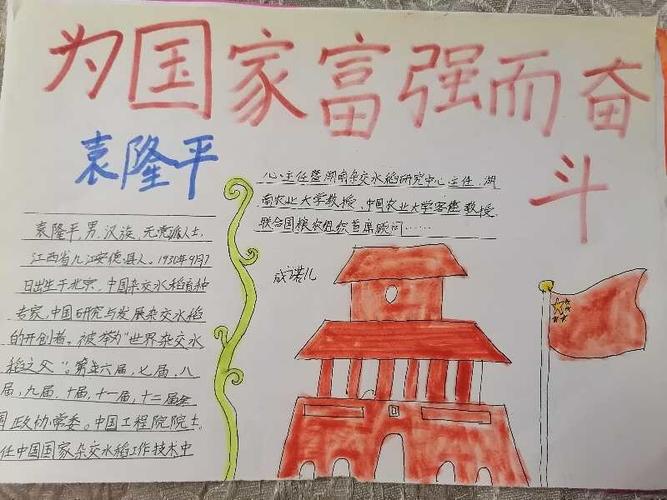 为国家富强而奋
斗
袁隆平
袁隆平,男,汉族,无党派人士,
江西省九江安德县人。1930年9月7
日出生于北京,中国杂交水稻育种
专家,中国研究与发展杂交水稻
的开创者。被举为"世界杂交水
稻之父"。第五六届,七届,八
届,九届,十届,十一届,十二届全
国政协常委。中国工程院院士。
任中国国家杂交水稻工作技术中
心主任暨湖南杂交水稻研究中心主任、湖
南农业大学教授、中国农业大学客座教授、
联合国粮农组织首席顾问……
成诺儿